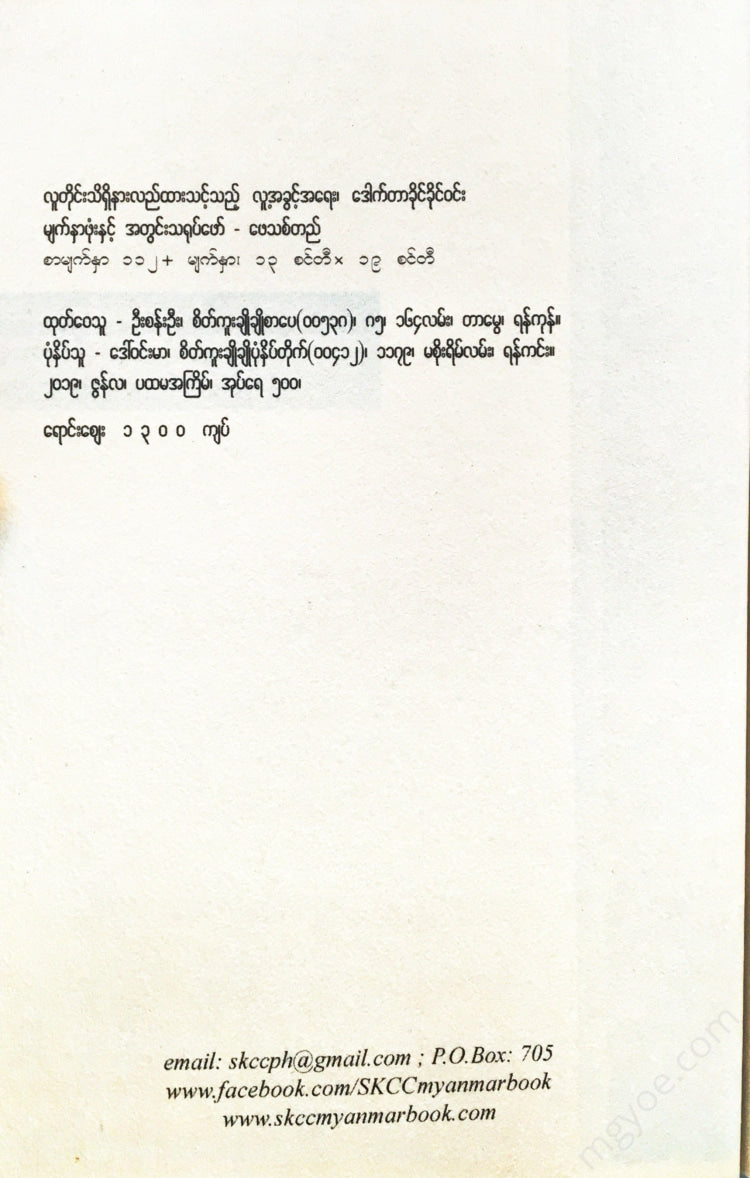 လူတိုင်းသိရှိနားလည်ထားသင့်သည့် လူ့အခွင့်အရေး၊ ဒေါက်တာခိုင်ခိုင်ဝင်း
မျက်နှာဖုံးနှင့် အတွင်းသရုပ်ဖော် - ဖေသစ်တည်
စာမျက်နှာ ၁၁၂+ မျက်နှာ၊ ၁၃ စင်တီ× ၁၉ စင်တီ
ထုတ်ဝေသူ - ဦးစန်းဦး၊ စိတ်ကူးချိုချိုစာပေ(၀၀၅၃ဂ)၊ ဂ၅၊ ၁၆၄လမ်း၊ တာမွေ၊ ရန်ကုန်။
ပုံနှိပ်သူ - ဒေါ်ဝင်းမာ၊ စိတ်ကူးချိုချိုပုံနှိပ်တိုက်(၀၀၄၁၂)၊ ၁၁၇၉၊ မစိုးရိမ်လမ်း၊ ရန်ကင်း။
၂၀၁၉၊ ဇွန်လ၊ ပထမအကြိမ်၊ အုပ်ရေ ၅၀၀၊
ရောင်းဈေး ၁၃၀၀ ကျပ်
email: skccph@gmail.com ; P.O.Box: 705
www.facebook.com/SKCCmyanmarbook
www.skccmyanmarbook.com
mgyoe.com